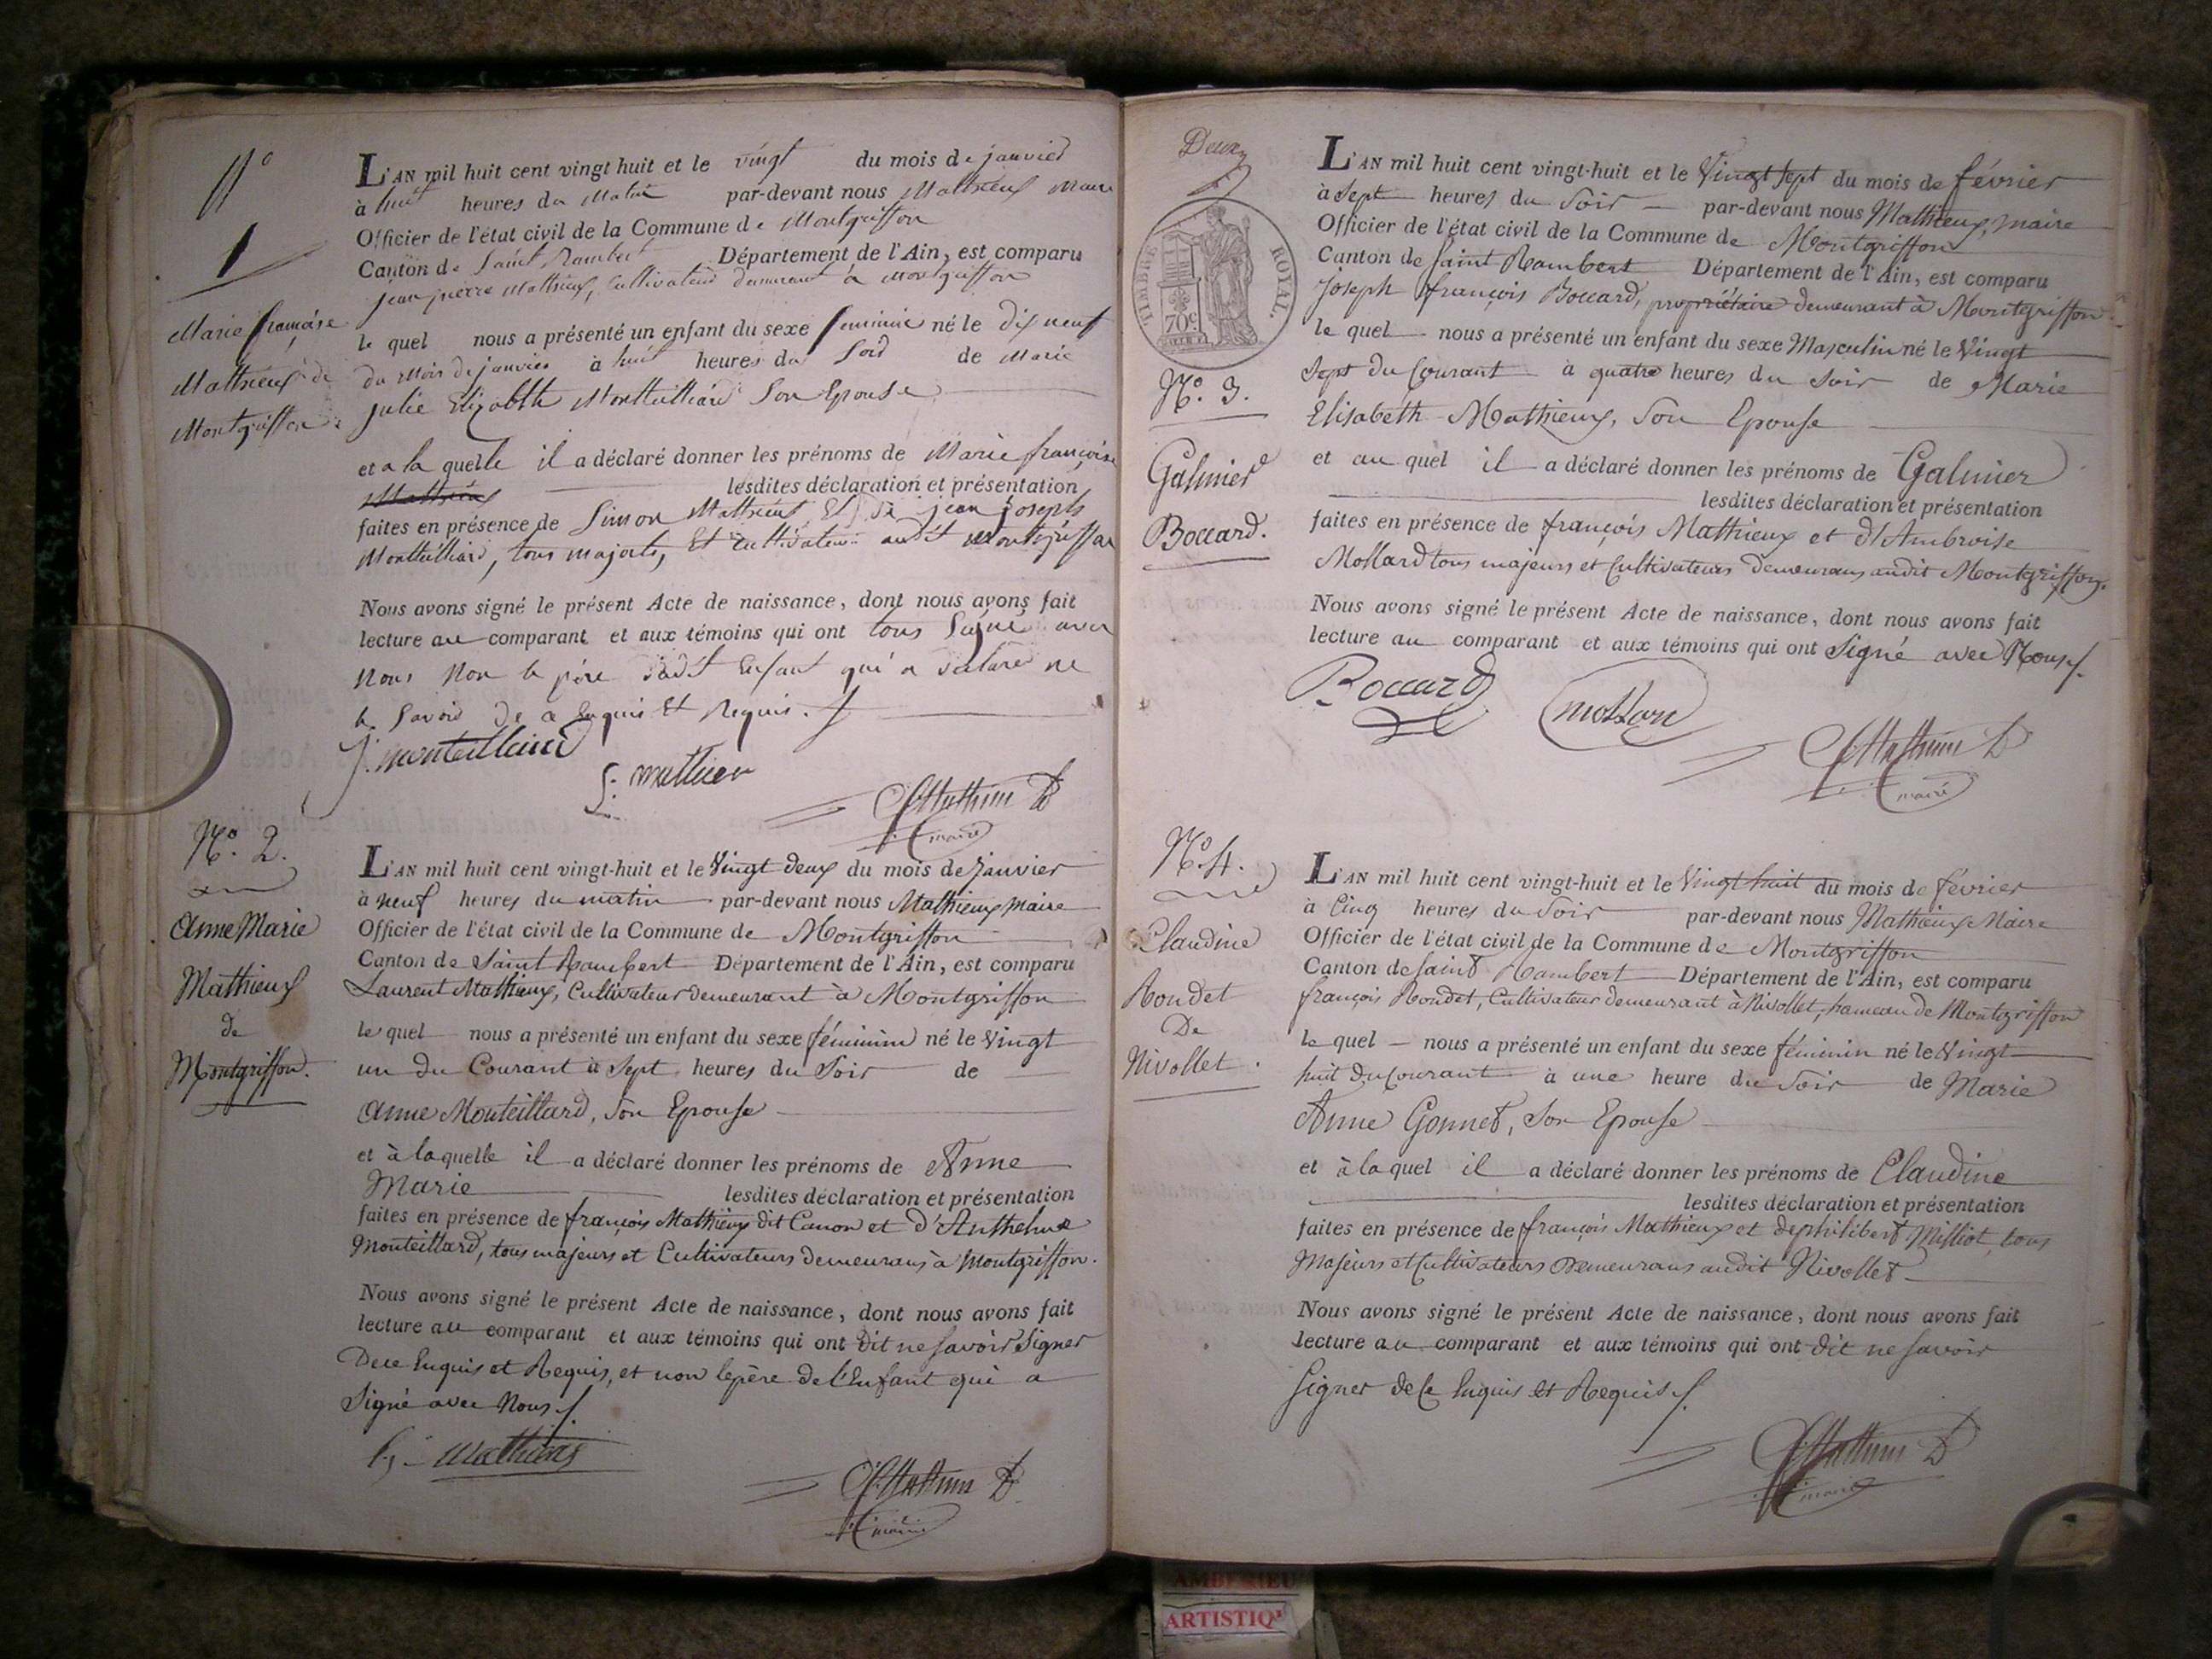 N°
1
Marie françoise
Mathieux de
Montgriffon
L'AN mil huit cent vingt huit et le vingt du mois de janvier
à huit heures du Matin par-devant nous Mathieux Maire
Officier de l'état civil de la Commune de Montgriffon
Canton de Saint Rambert Département de l'Ain, est comparu
jean pierre Mathieux, Cultivateur demeurant à Montgriffon
le quel nous a présenté un enfant du sexe feminin né le dix neuf
du Mois de janvier à huit heures du Soir de Marie
julie Elizabeth Monteilliard Son Epouse
et a la quelle il a déclaré donner les prénoms de Marie françoise
Mathieux lesdites déclaration et présentation
faites en présence de Simon Mathieux Et de jean joseph
Monteilliard, tous majeurs, Et Cultivateurs audit Montgriffon
Nous avons signé le présent Acte de naissance, dont nous avons fait
lecture au comparant et aux témoins qui ont tous Signé avec
nous Non le père dudit Enfant qui a déclaré ne
le Savoir de ce Enquis Et Requis.
j. monteillard
S. mathieu
Mathieux
maire
N°. 2.
Anne Marie
Mathieux
de
Montgriffon.
L'AN mil huit cent vingt-huit et le Vingt deux du mois de Janvier
à neuf heures du matin par-devant nous Mathieux maire
Officier de l'état civil de la Commune de Montgriffon
Canton de Saint Rambert Département de l'Ain, est comparu
Laurent Mathieux, Cultivateur demeurant à Montgriffon
le quel nous a présenté un enfant du sexe féminin né le Vingt
un du Courant à Sept heures du Soir de
Anne Monteillard, Son Epouse
et à laquelle il a déclaré donner les prénoms de Anne
Marie lesdites déclaration et présentation
faites en présence de françois Mathieux dit Canon et d'Anthelme
Monteillard, tous majeurs et Cultivateurs demeurans à Montgriffon.
Nous avons signé le présent Acte de naissance, dont nous avons fait
lecture au comparant et aux témoins qui ont Dit ne Savoir Signer
De ce Enquis et Requis, et non le père de l'Enfant qui a
Signé avec Nous
Mathieux
maire
Deux
TIMBRE ROYAL.
70c
N°. 3.
Galmier
Boccard.
L'AN mil huit cent vingt-huit et le Vingt Sept du mois de février
à Sept heures du Soir par-devant nous Mathieux, maire
Officier de l'état civil de la Commune de Montgriffon
Canton de Saint Rambert Département de l'Ain, est comparu
Joseph françois Boccard, propriétaire demeurant à Montgriffon
le quel nous a présenté un enfant du sexe Masculin né le Vingt
Sept du Courant à quatre heures du Soir de Marie
Elisabeth Mathieux, Son Epouse
et au quel il a déclaré donner les prénoms de Galmier
lesdites déclaration et présentation
faites en présence de françois Mathieux et d'Ambroise
Mollard tous majeurs et Cultivateurs demeurans audit Montgriffon.
Nous avons signé le présent Acte de naissance, dont nous avons fait
lecture au comparant et aux témoins qui ont Signé avec Nous
Boccard
Mollard
Mathieux
maire
N°. 4.
Claudine
Rondet
De
Nivollet.
L'AN mil huit cent vingt-huit et le Vingt huit du mois de février
à Cinq heures du Soir par-devant nous Mathieux Maire
Officier de l'état civil de la Commune de Montgriffon
Canton de Saint Rambert Département de l'Ain, est comparu
françois Rondet, Cultivateur demeurant à Nivollet, hameau de Montgriffon
le quel nous a présenté un enfant du sexe féminin né le Vingt
huit du Courant à une heure du Soir de Marie
Anne Gonnet, Son Epouse
et à la quel il a déclaré donner les prénoms de Claudine
lesdites déclaration et présentation
faites en présence de françois Mathieux et de philibert Milliot, tous
Majeurs et Cultivateurs Demeurans audit Nivollet
Nous avons signé le présent Acte de naissance, dont nous avons fait
lecture au comparant et aux témoins qui ont dit ne Savoir
Signer de Ce Enquis et Requis
Mathieux
maire
AMBERIEU
ARTISTIQ